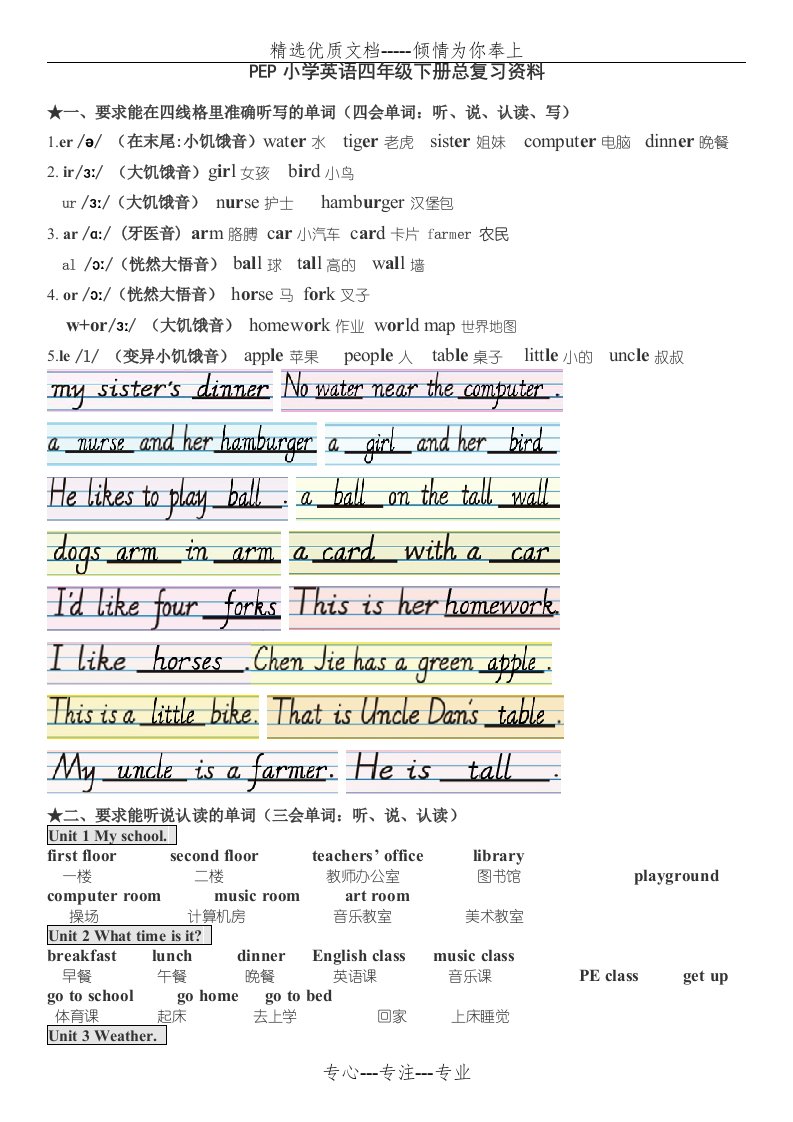 精选优质文档-----倾情为你奉上
PEP 小学英语四年级下册总复习资料
★一、要求能在四线格里准确听写的单词（四会单词：听、说、认读、写）
1.er /ə/ （在末尾:小饥饿音）water 水 tiger 老虎 sister 姐妹 computer 电脑 dinner 晚餐
2. ir/ɜː/（大饥饿音）girl 女孩 bird 小鸟
ur /ɜː/（大饥饿音） nurse 护士 hamburger 汉堡包
3. ar /ɑː/ (牙医音) arm 胳膊 car 小汽车 card 卡片 farmer 农民
al /ɔː/（恍然大悟音） ball 球 tall 高的 wall 墙
4. or /ɔː/（恍然大悟音） horse 马 fork 叉子
w+or/ɜː/ （大饥饿音） homework 作业 world map 世界地图
5.le /l/ （变异小饥饿音） apple 苹果 people 人 table 桌子 little 小的 uncle 叔叔
my sister's dinner No water near the computer .
a nurse and her hamburger a girl and her bird
He likes to play ball . a ball on the tall wall
dogs arm in arm a card with a car
I'd like four forks This is her homework.
I like horses . Chen Jie has a green apple .
This is a little bike. That is Uncle Dan's table .
My uncle is a farmer. He is tall .
★二、要求能听说认读的单词（三会单词：听、说、认读）
Unit 1 My school.
first floor second floor teachers’ office library
一楼 二楼 教师办公室 图书馆 playground
computer room music room art room
操场 计算机房 音乐教室 美术教室
Unit 2 What time is it?
breakfast lunch dinner English class music class
早餐 午餐 晚餐 英语课 音乐课 PE class get up
go to school go home go to bed
体育课 起床 去上学 回家 上床睡觉
Unit 3 Weather.
专心---专注---专业